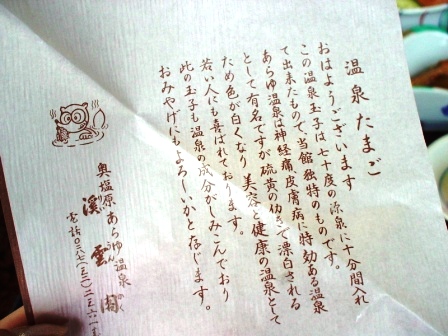 温泉たまご
おはようございます
この温泉玉子は七十度の源泉に十分間入れ
て出来たもので、当館独特のものです。
あらゆ温泉は神経痛皮膚病に特効ある温泉
として有名ですが硫黄の幼で漂白される
ため色が白くなり美容と健康の温泉として
若い人にも喜ばれております。
此の玉子も温泉の成分がしみこんでおり
おみやげにもよろしいかと存じます。
奥塩原あらゆ温泉
渓雲閣
電話〇二八七(三二)二三六一